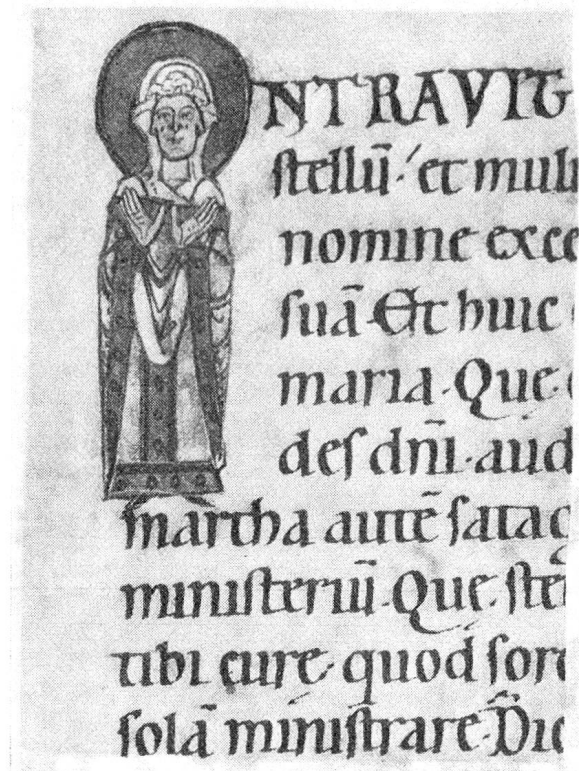 INTRAVIT
ſtellū· et muli
nomine exce
ſuā· Et huic
maria· Que
deſ dn̄i· aud
martha autē ſatag
miniſteriū· Que ſte
tibi cure· quod ſoro
ſolā miniſtrare· Dic